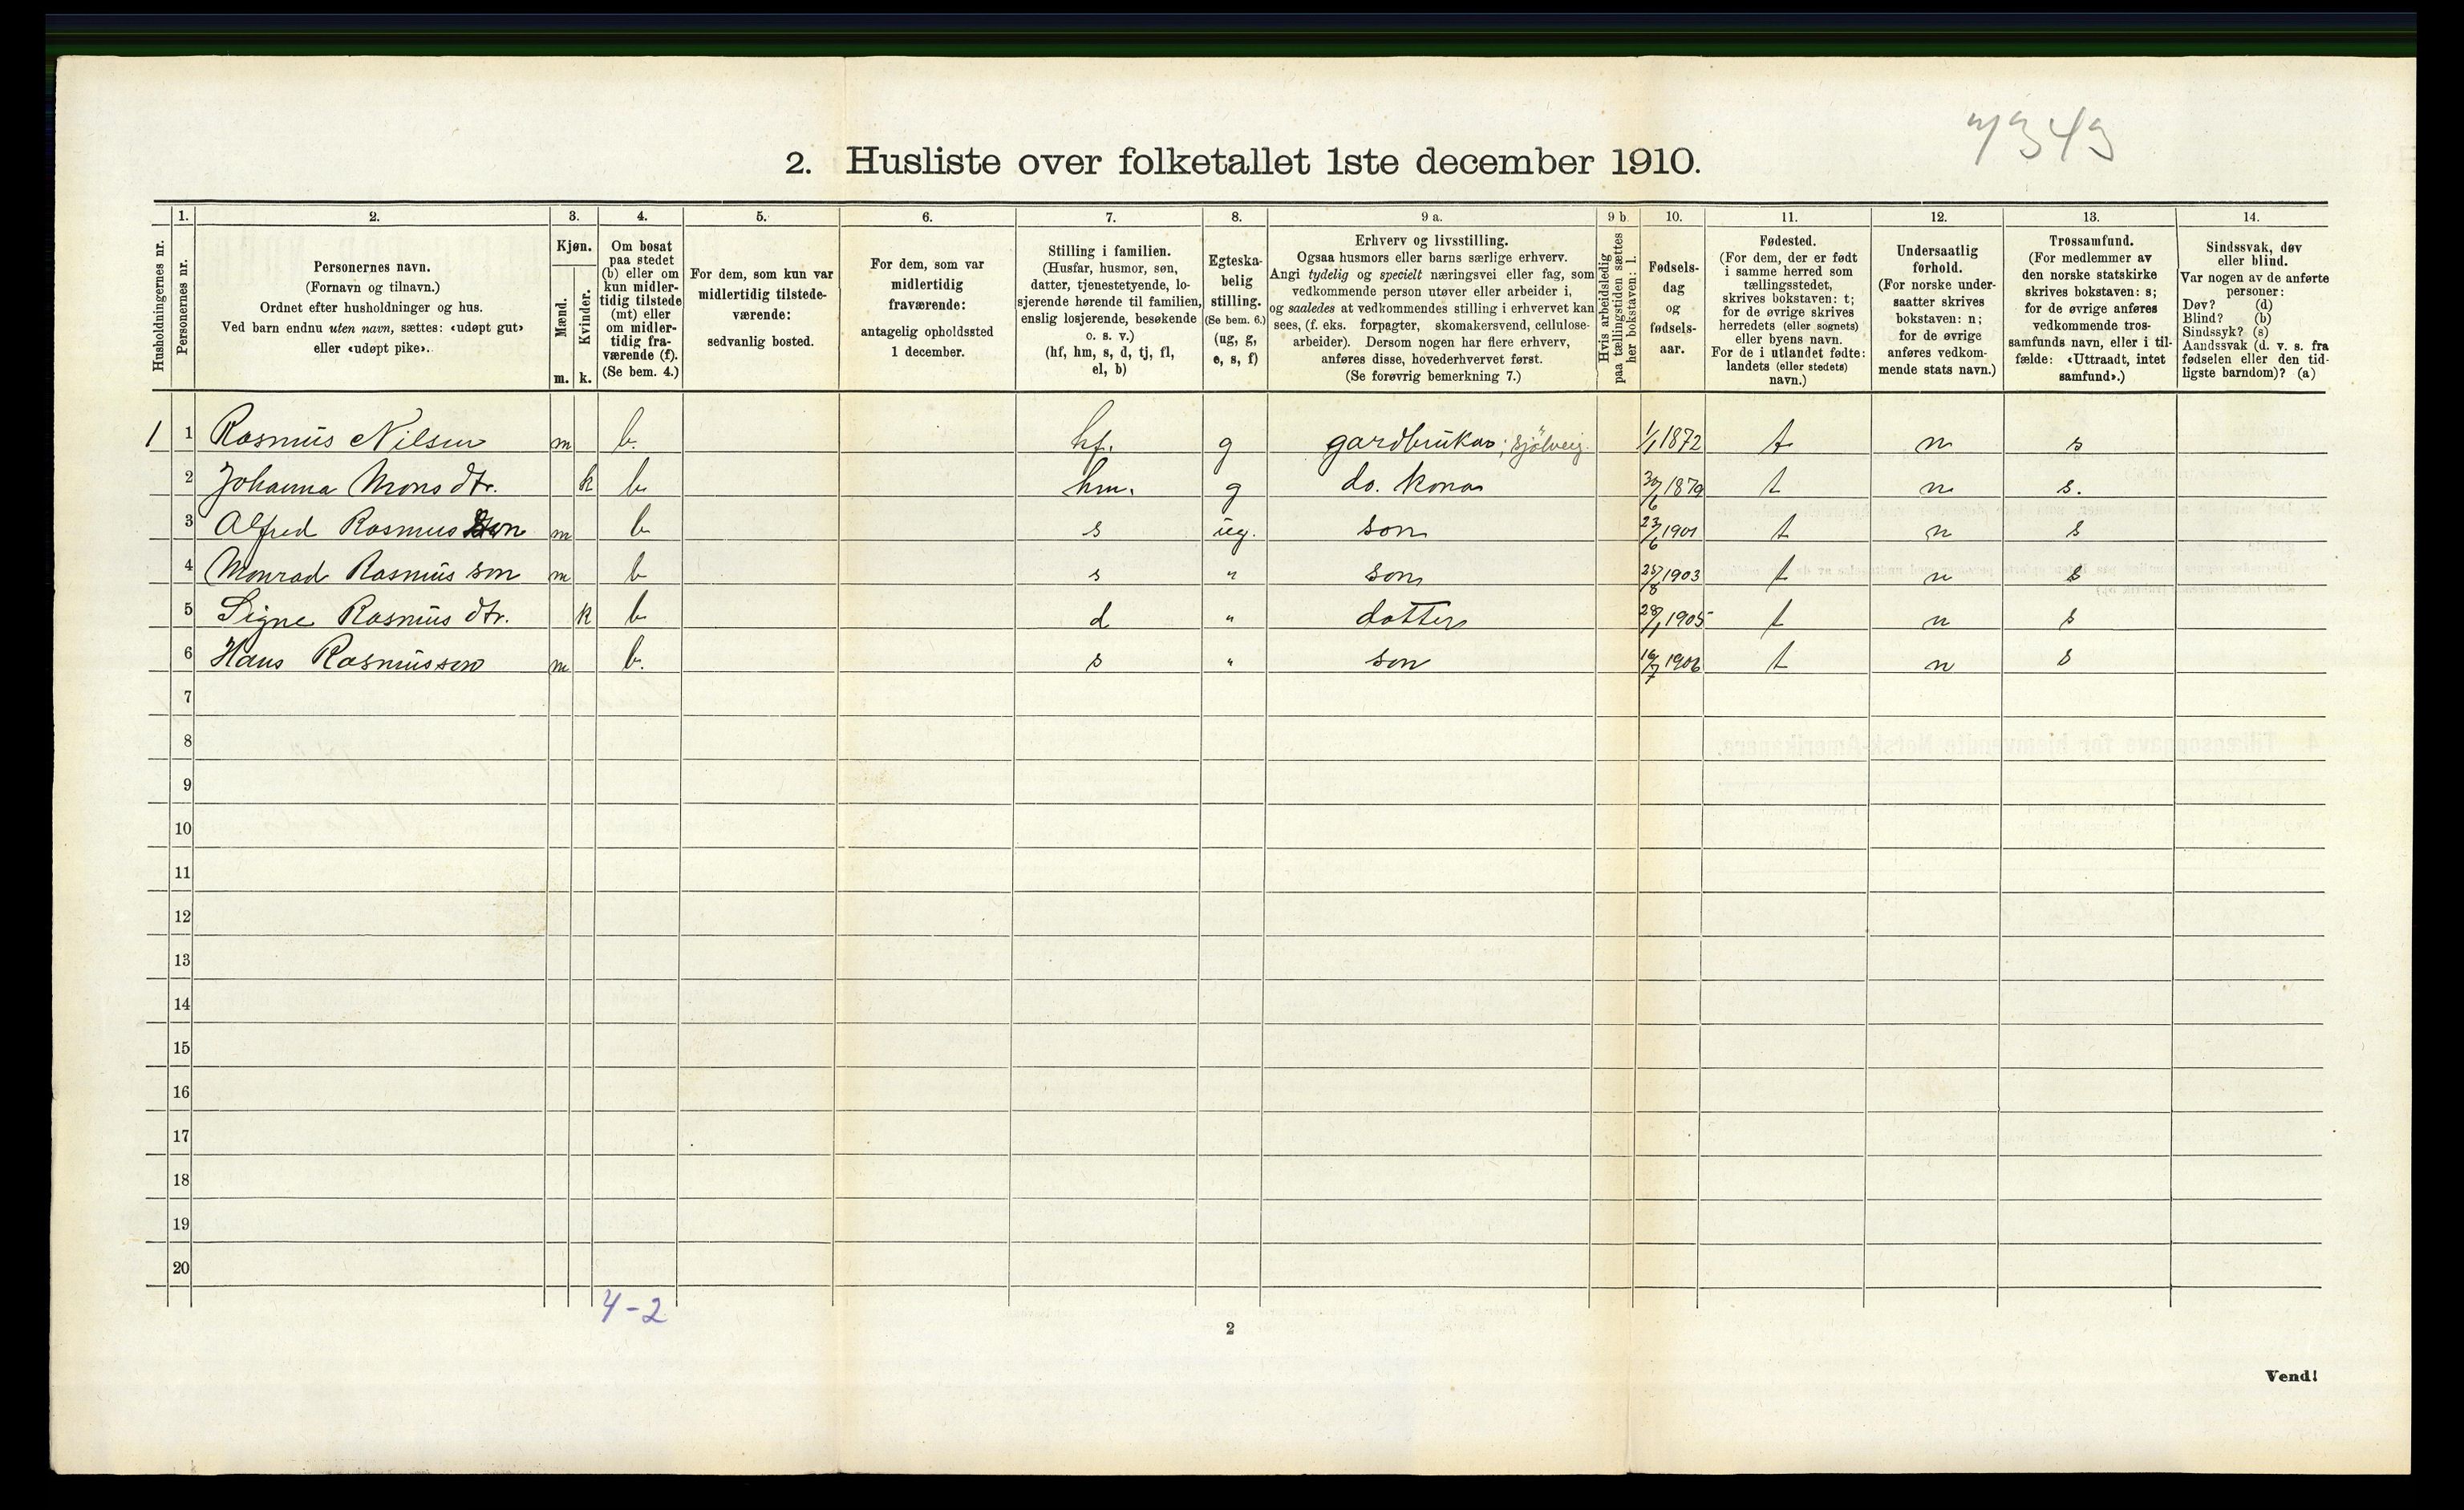 7343
2. Husliste over folketallet 1ste december 1910.
Husholdningernes nr.
1.
Personernes nr.
2.
Personernes navn.
(Fornavn og tilnavn.)
Ordnet efter husholdninger og hus.
Ved barn endnu uten navn, sættes: «udøpt gut»
eller «udøpt pike».
3.
Kjøn.
Mænd.
m.
Kvinder.
k.
4.
Om bosat
paa stedet
(b) eller om
kun midler-
tidig tilstede
(mt) eller
om midler-
tidig fra-
værende (f).
(Se bem. 4.)
5.
For dem, som kun var
midlertidig tilstede-
værende:
sedvanlig bosted.
6.
For dem, som var
midlertidig
fraværende:
antagelig opholdssted
1 december.
7.
Stilling i familien.
(Husfar, husmor, søn,
datter, tjenestetyende, lo-
sjerende hørende til familien,
enslig losjerende, besøkende
o. s. v.)
(hf, hm, s, d, tj, fl,
el, b)
8.
Egteska-
belig
stilling.
(Se bem. 6.)
(ug, g,
e, s, f)
9 a.
Erhverv og livsstilling.
Ogsaa husmors eller barns særlige erhverv.
Angi tydelig og specielt næringsvei eller fag, som
vedkommende person utøver eller arbeider i,
og saaledes at vedkommendes stilling i erhvervet kan
sees, (f. eks. forpagter, skomakersvend, cellulose-
arbeider). Dersom nogen har flere erhverv,
anføres disse, hovederhvervet først.
(Se forøvrig bemerkning 7.)
9 b.
Hvis arbeidsledig
paa tællingstiden sættes
her bokstaven: l.
10.
Fødsels-
dag
og
fødsels-
aar.
11.
Fødested.
(For dem, der er født
i samme herred som
tællingsstedet,
skrives bokstaven: t;
for de øvrige skrives
herredets (eller sognets)
eller byens navn.
For de i utlandet fødte:
landets (eller stedets)
navn.)
12.
Undersaatlig
forhold.
(For norske under-
saatter skrives
bokstaven: n;
for de øvrige
anføres vedkom-
mende stats navn.)
13.
Trossamfund.
(For medlemmer av
den norske statskirke
skrives bokstaven: s;
for de øvrige anføres
vedkommende tros-
samfunds navn, eller i til-
fælde: «Uttraadt, intet
samfund».)
14.
Sindssvak, døv
eller blind.
Var nogen av de anførte
personer:
Døv? (d)
Blind? (b)
Sindssyk? (s)
Aandssvak (d. v. s. fra
fødselen eller den tid-
ligste barndom)? (a)
1 1 Rasmus Nilsen m b. hf. g gardbrukar; sjölveig. 1/1 1872 t n s
2 Johanna Mons dtr. k b hm. g do. kona 30/6 1879 t n s.
3 Alfred Rasmus son m b s ug. son 23/6 1901 t n s
4 Monrad Rasmus son m b s " son 25/8 1903 t n s
5 Signe Rasmus dtr. k b d " dotter 28/1 1905 t n s
6 Hans Rasmusson m b. s " son 16/7 1906 t n s
7
8
9
10
11
12
13
14
15
16
17
18
19
20
4-2
2
Vend!